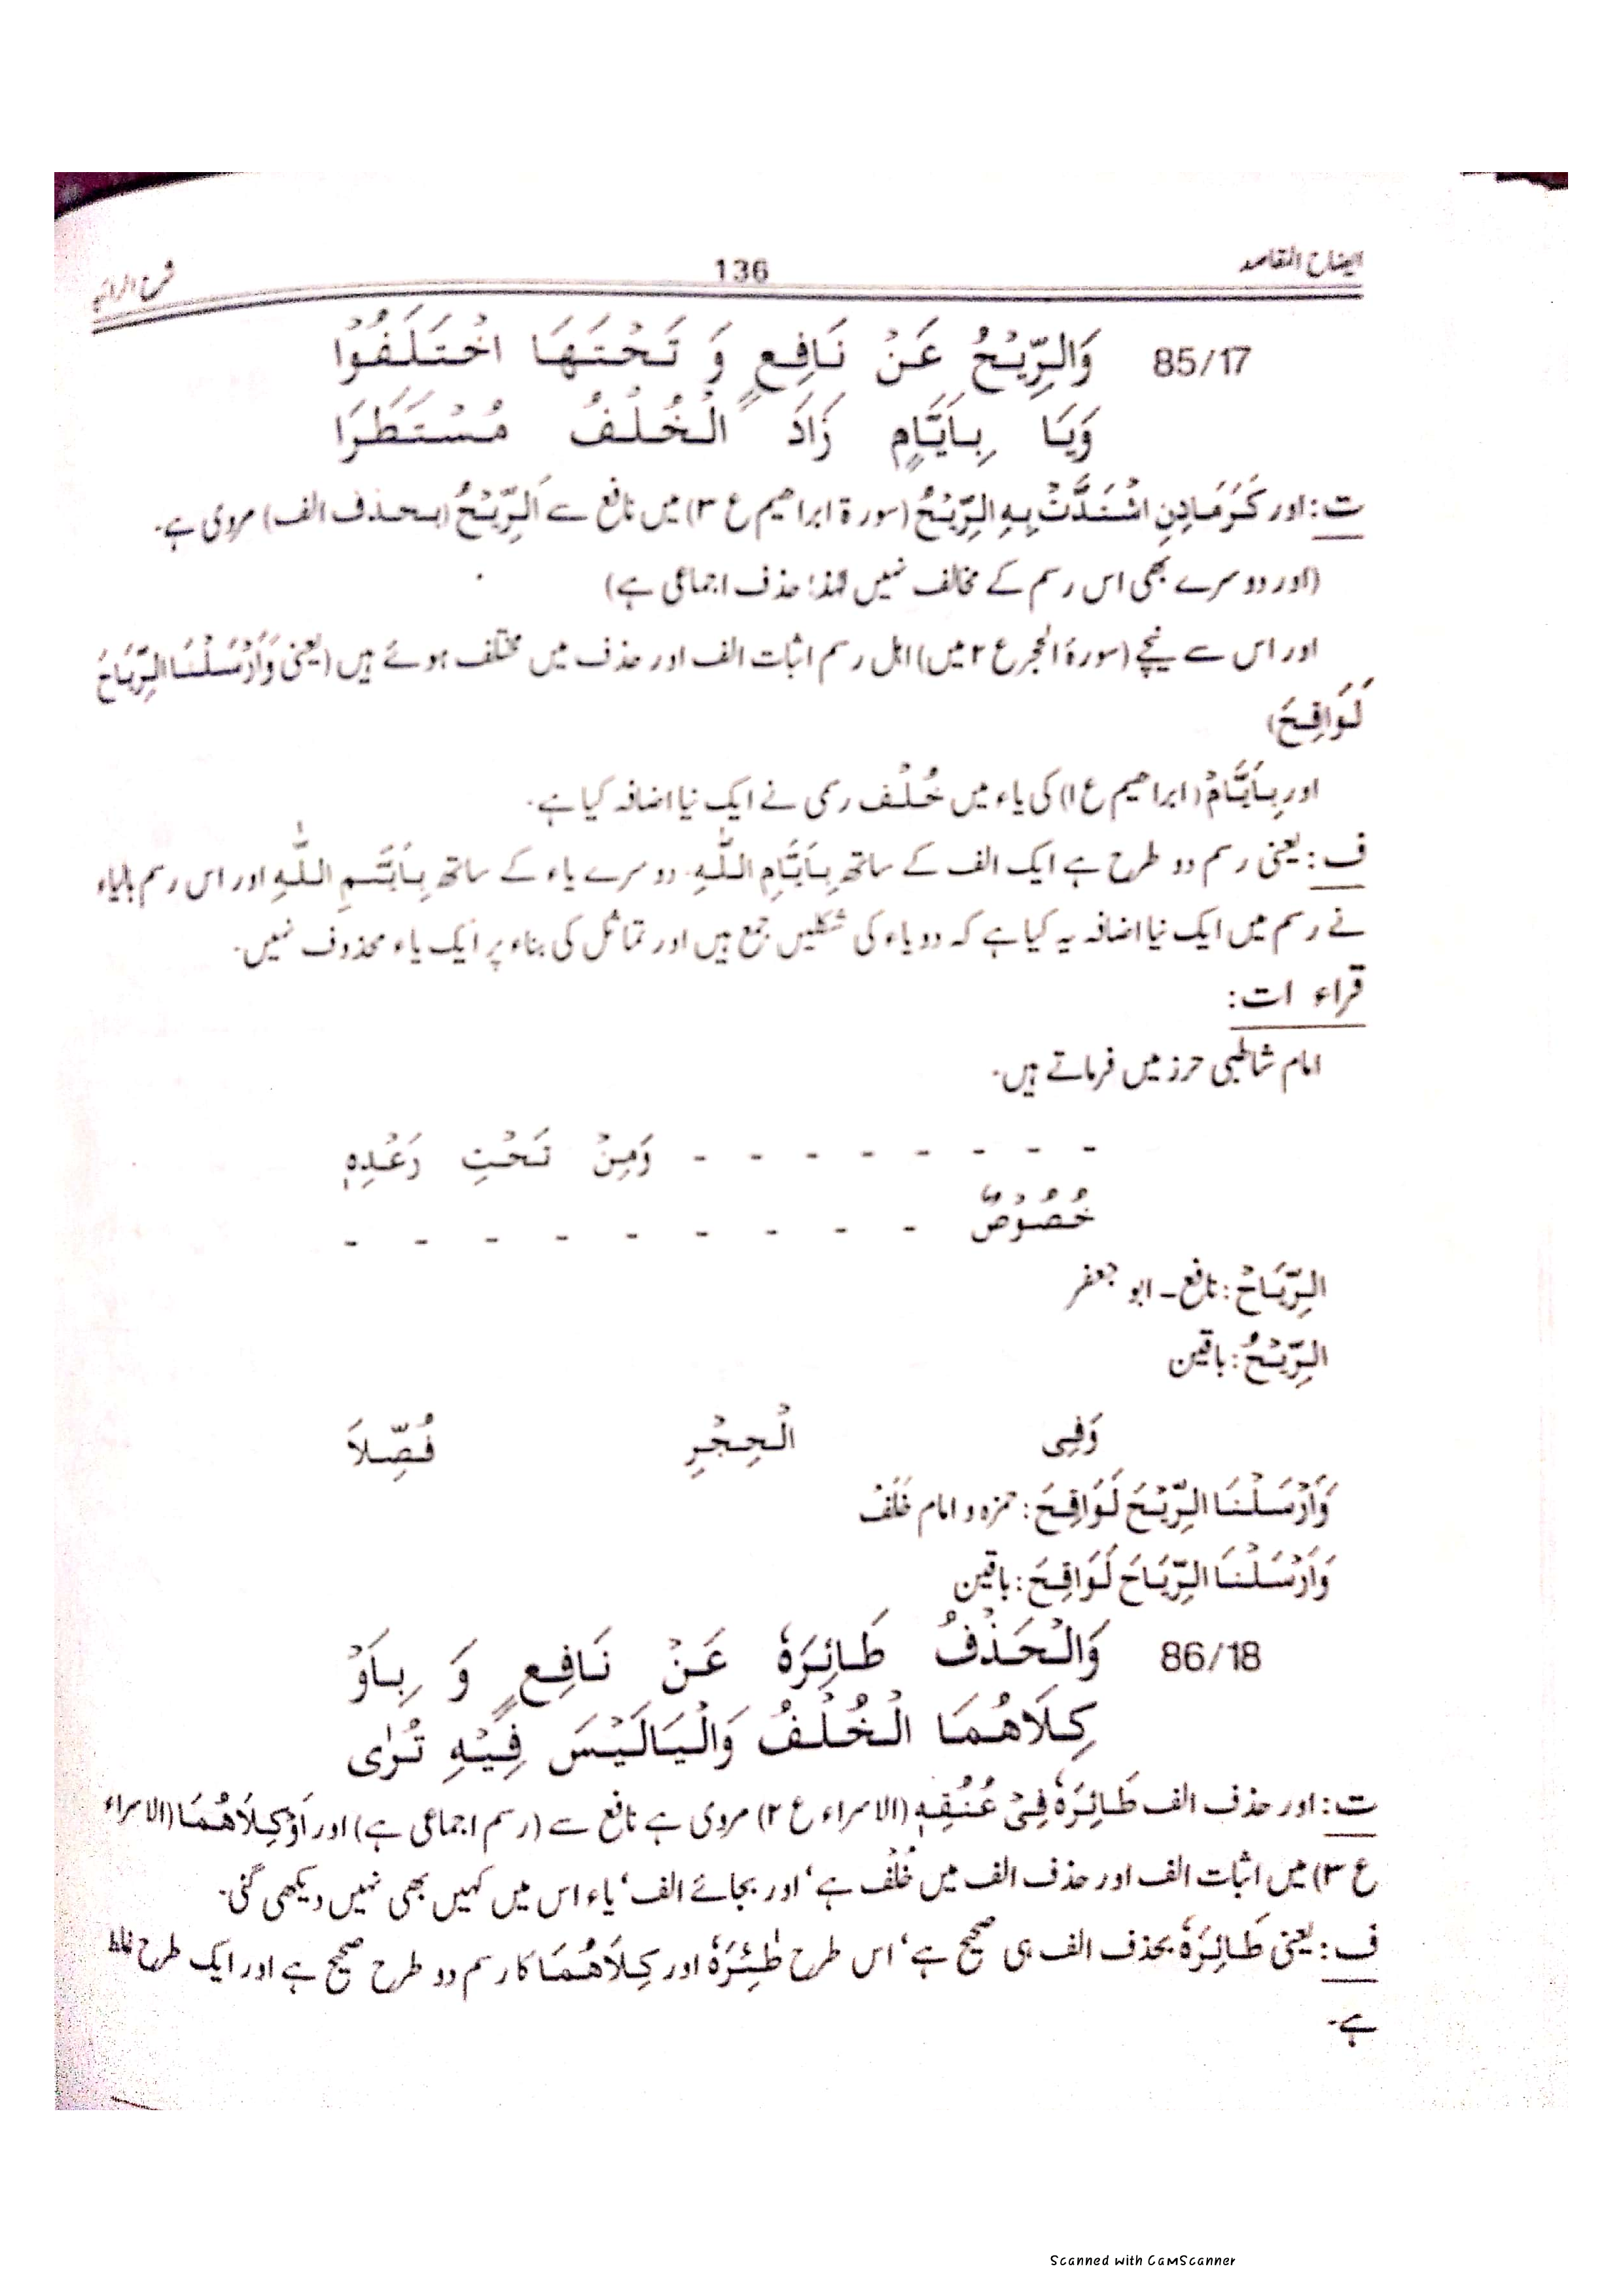 ایضاح المقاصد
136
شرح الرائیہ
85/17 وَالرِّیْحُ عَنْ نَافِعٍ وَ تَحْتَهَا اخْتَلَفُوْا
وَیَا بِاَیَّامٍ زَادَ الْخُلْفُ مُسْتَطَرَا
ت: اور کَرَمَادِنِ اشْتَدَّتْ بِهِ الرِّیْحُ (سورۃ ابراهیم ع ۳) میں نافع سے اَلرِّیْحُ (بحذف الف) مروی ہے۔
(اور دوسرے بھی اس رسم کے مخالف نہیں لہٰذا حذف اجماعی ہے)
اور اس سے نیچے (سورۃ الحجر ع ۲ میں) اہل رسم اثبات الف اور حذف میں مختلف ہوئے ہیں (یعنی وَاَرْسَلْنَا الرِّیَاحَ
لَوَاقِحَ)
اور بِاَیّٰمِ (ابراهیم ع ۱) کی یاء میں خُلْف رسمی نے ایک نیا اضافہ کیا ہے۔
ف: یعنی رسم دو طرح ہے ایک الف کے ساتھ بِاَیَّامِ اللّٰهِ۔ دوسرے یاء کے ساتھ بِاَیّٰمِ اللّٰهِ اور اس رسم بالیاء
نے رسم میں ایک نیا اضافہ یہ کیا ہے کہ دو یاء کی شکلیں جمع ہیں اور تماثل کی بناء پر ایک یاء محذوف نہیں۔
قراء ات:
امام شاطبی حرز میں فرماتے ہیں۔
- - - - - - - - وَمِنْ تَحْتِ رَعْدِهٖ
خُصُوْصٌ - - - - - - - - -
الرِّیَاحُ: نافع۔ ابو جعفر
الرِّیْحُ: باقین
وَفِی الْحِجْرِ فُصِّلَا
وَاَرْسَلْنَا الرِّیْحَ لَوَاقِحَ: حمزہ و امام خَلَفْ
وَاَرْسَلْنَا الرِّیَاحَ لَوَاقِحَ: باقین
86/18 وَالْحَذْفُ طَائِرَهٗ عَنْ نَافِعٍ وَ بِاَوْ
کِلَاهُمَا الْخُلْفُ وَالْیَالَیْسَ فِیْهِ تُرٰی
ت: اور حذف الف طَائِرَهٗ فِیْ عُنُقِهٖ (الاسراء ع ۲) مروی ہے نافع سے (رسم اجماعی ہے) اور اَوْکِلَاهُمَا (الاسراء
ع ۳) میں اثبات الف اور حذف الف میں خُلْف ہے‘ اور بجائے الف‘ یاء اس میں کہیں بھی نہیں دیکھی گئی۔
ف: یعنی طَائِرَهٗ بحذف الف ہی صحیح ہے‘ اس طرح طٰئِرَهٗ اور کِلَاهُمَا کا رسم دو طرح صحیح ہے اور ایک طرح غلط
ہے۔
Scanned with CamScanner